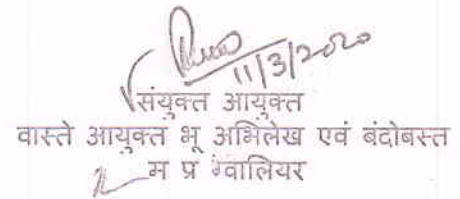 11/3/2020
संयुक्त आयुक्त
वास्ते आयुक्त भू अभिलेख एवं बंदोबस्त
म प्र ग्वालियर